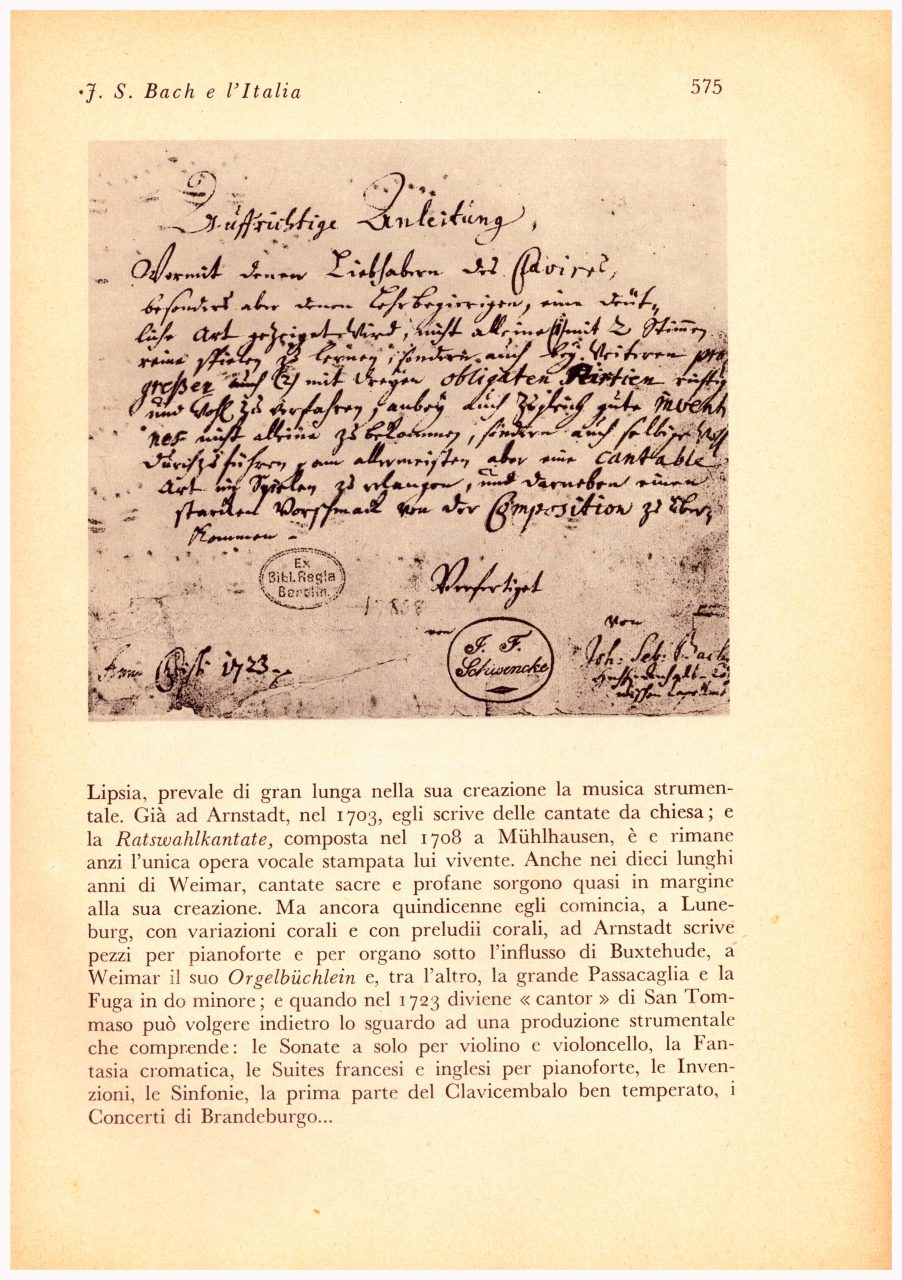 J. S. Bach e l'Italia
575
Auffrichtige Anleitung,
Wormit denen Liebhabern des Clavires,
besonders aber denen Lehrbegierigen, eine deüt-
liche Art gezeiget wird, nicht alleine (1) mit 2 Stimen
reine spielen zu lernen, sondern auch bey weiteren pro
greßen auch (2) mit dreyen obligaten Partien richtig
und wohl zu verfahren, anbey auch zugleich gute invent
nes nicht alleine zu bekommen, sondern auch selbige wohl
durchzuführen, am allermeisten aber eine cantable
Art im Spielen zu erlangen, und darneben einen
starcken Vorschmack von der Composition zu über-
kommen.
Ex
Bibl. Regia
Berolin.
Verfertiget
von
von
J. F.
Schwencke
Joh: Seb: Bach
Anno Christi 1723.
Lipsia, prevale di gran lunga nella sua creazione la musica strumen-
tale. Già ad Arnstadt, nel 1703, egli scrive delle cantate da chiesa; e
la Ratswahlkantate, composta nel 1708 a Mühlhausen, è e rimane
anzi l'unica opera vocale stampata lui vivente. Anche nei dieci lunghi
anni di Weimar, cantate sacre e profane sorgono quasi in margine
alla sua creazione. Ma ancora quindicenne egli comincia, a Lune-
burg, con variazioni corali e con preludii corali, ad Arnstadt scrive
pezzi per pianoforte e per organo sotto l'influsso di Buxtehude, a
Weimar il suo Orgelbüchlein e, tra l'altro, la grande Passacaglia e la
Fuga in do minore; e quando nel 1723 diviene « cantor » di San Tom-
maso può volgere indietro lo sguardo ad una produzione strumentale
che comprende: le Sonate a solo per violino e violoncello, la Fan-
tasia cromatica, le Suites francesi e inglesi per pianoforte, le Inven-
zioni, le Sinfonie, la prima parte del Clavicembalo ben temperato, i
Concerti di Brandeburgo...